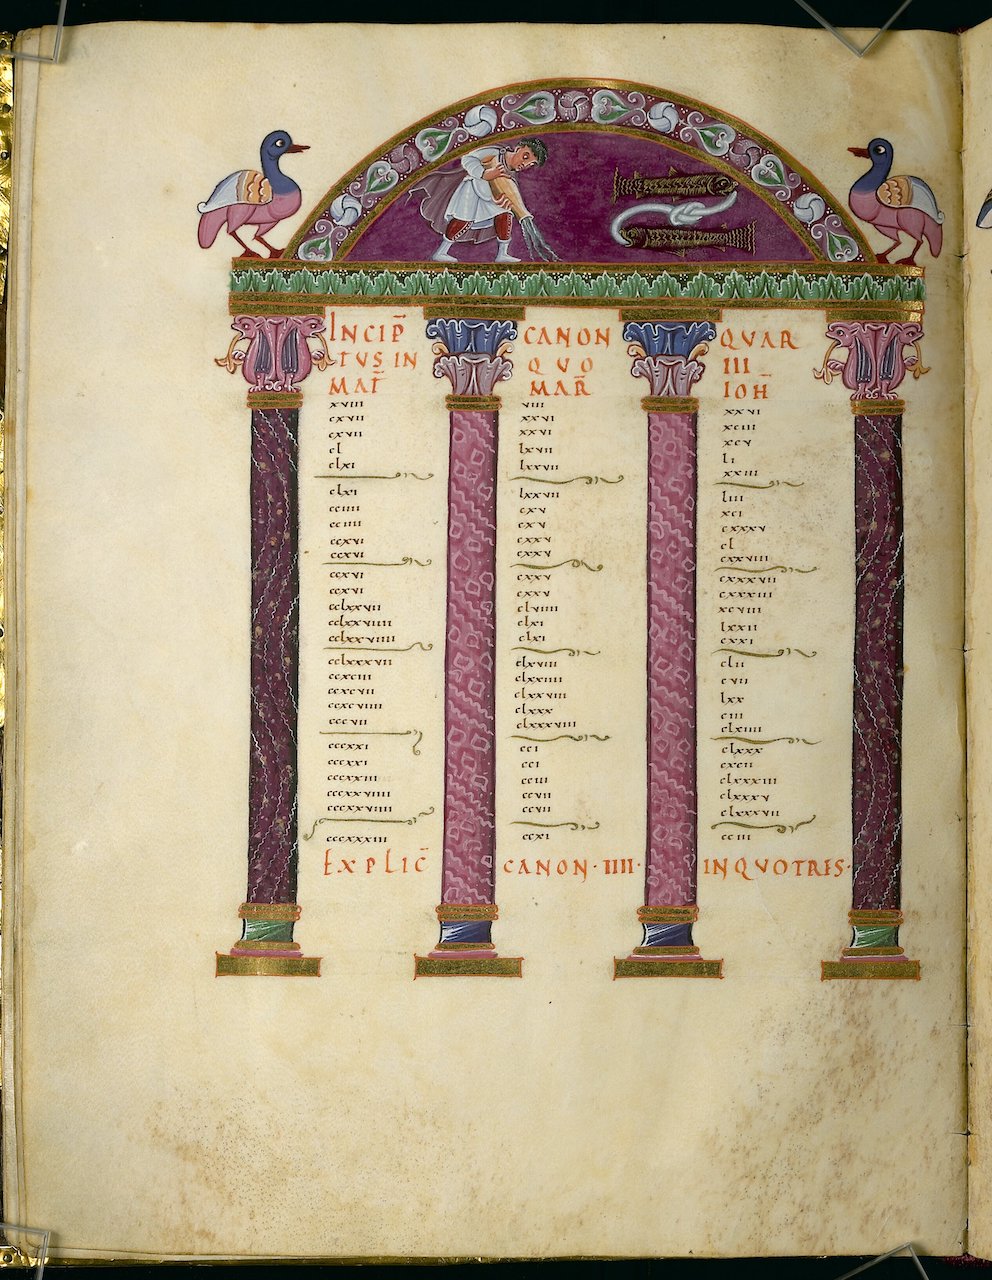 INCIP̄ CANON QVAR
TVS IN QVO III
MAT̄ MAR̄ IOH̄
xviii viii xxvi
cxvii xxvi xciii
cxvii xxvi xcv
cl lxvii li
clxi lxxvii xxiii
clxi lxxvii liii
cciiii cxv xci
cciiii cxv cxxxv
ccxvi cxxv cl
ccxvi cxxv cxxviii
ccxvi cxxv cxxxvii
ccxvi cxxv cxxxiii
cclxxvii clviiii xcviii
cclxxviiii clxi lxxii
cclxxviiii clxi cxxi
cclxxxvii clxviii clii
ccxciii clxxiiii cvii
ccxcvii clxxviii lxx
ccxcviiii clxxx ciii
cccvii clxxxviii clxiiii
cccxxi cci clxxx
cccxxi cci cxcii
cccxxiii cciii clxxxiii
cccxxviiii ccvii clxxxv
cccxxviiii ccvii clxxxvii
cccxxxiii ccxi cciii
EXPLIC̄ CANON·IIII· INQVOTRES·